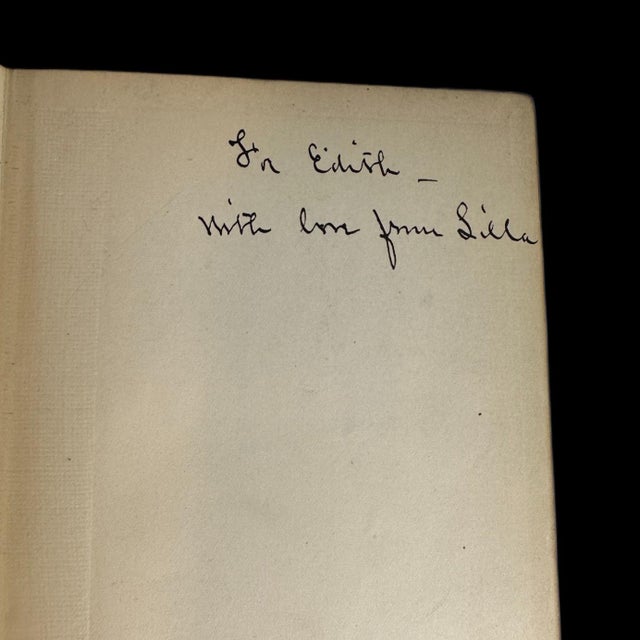 For Edith –
with love from Lilla